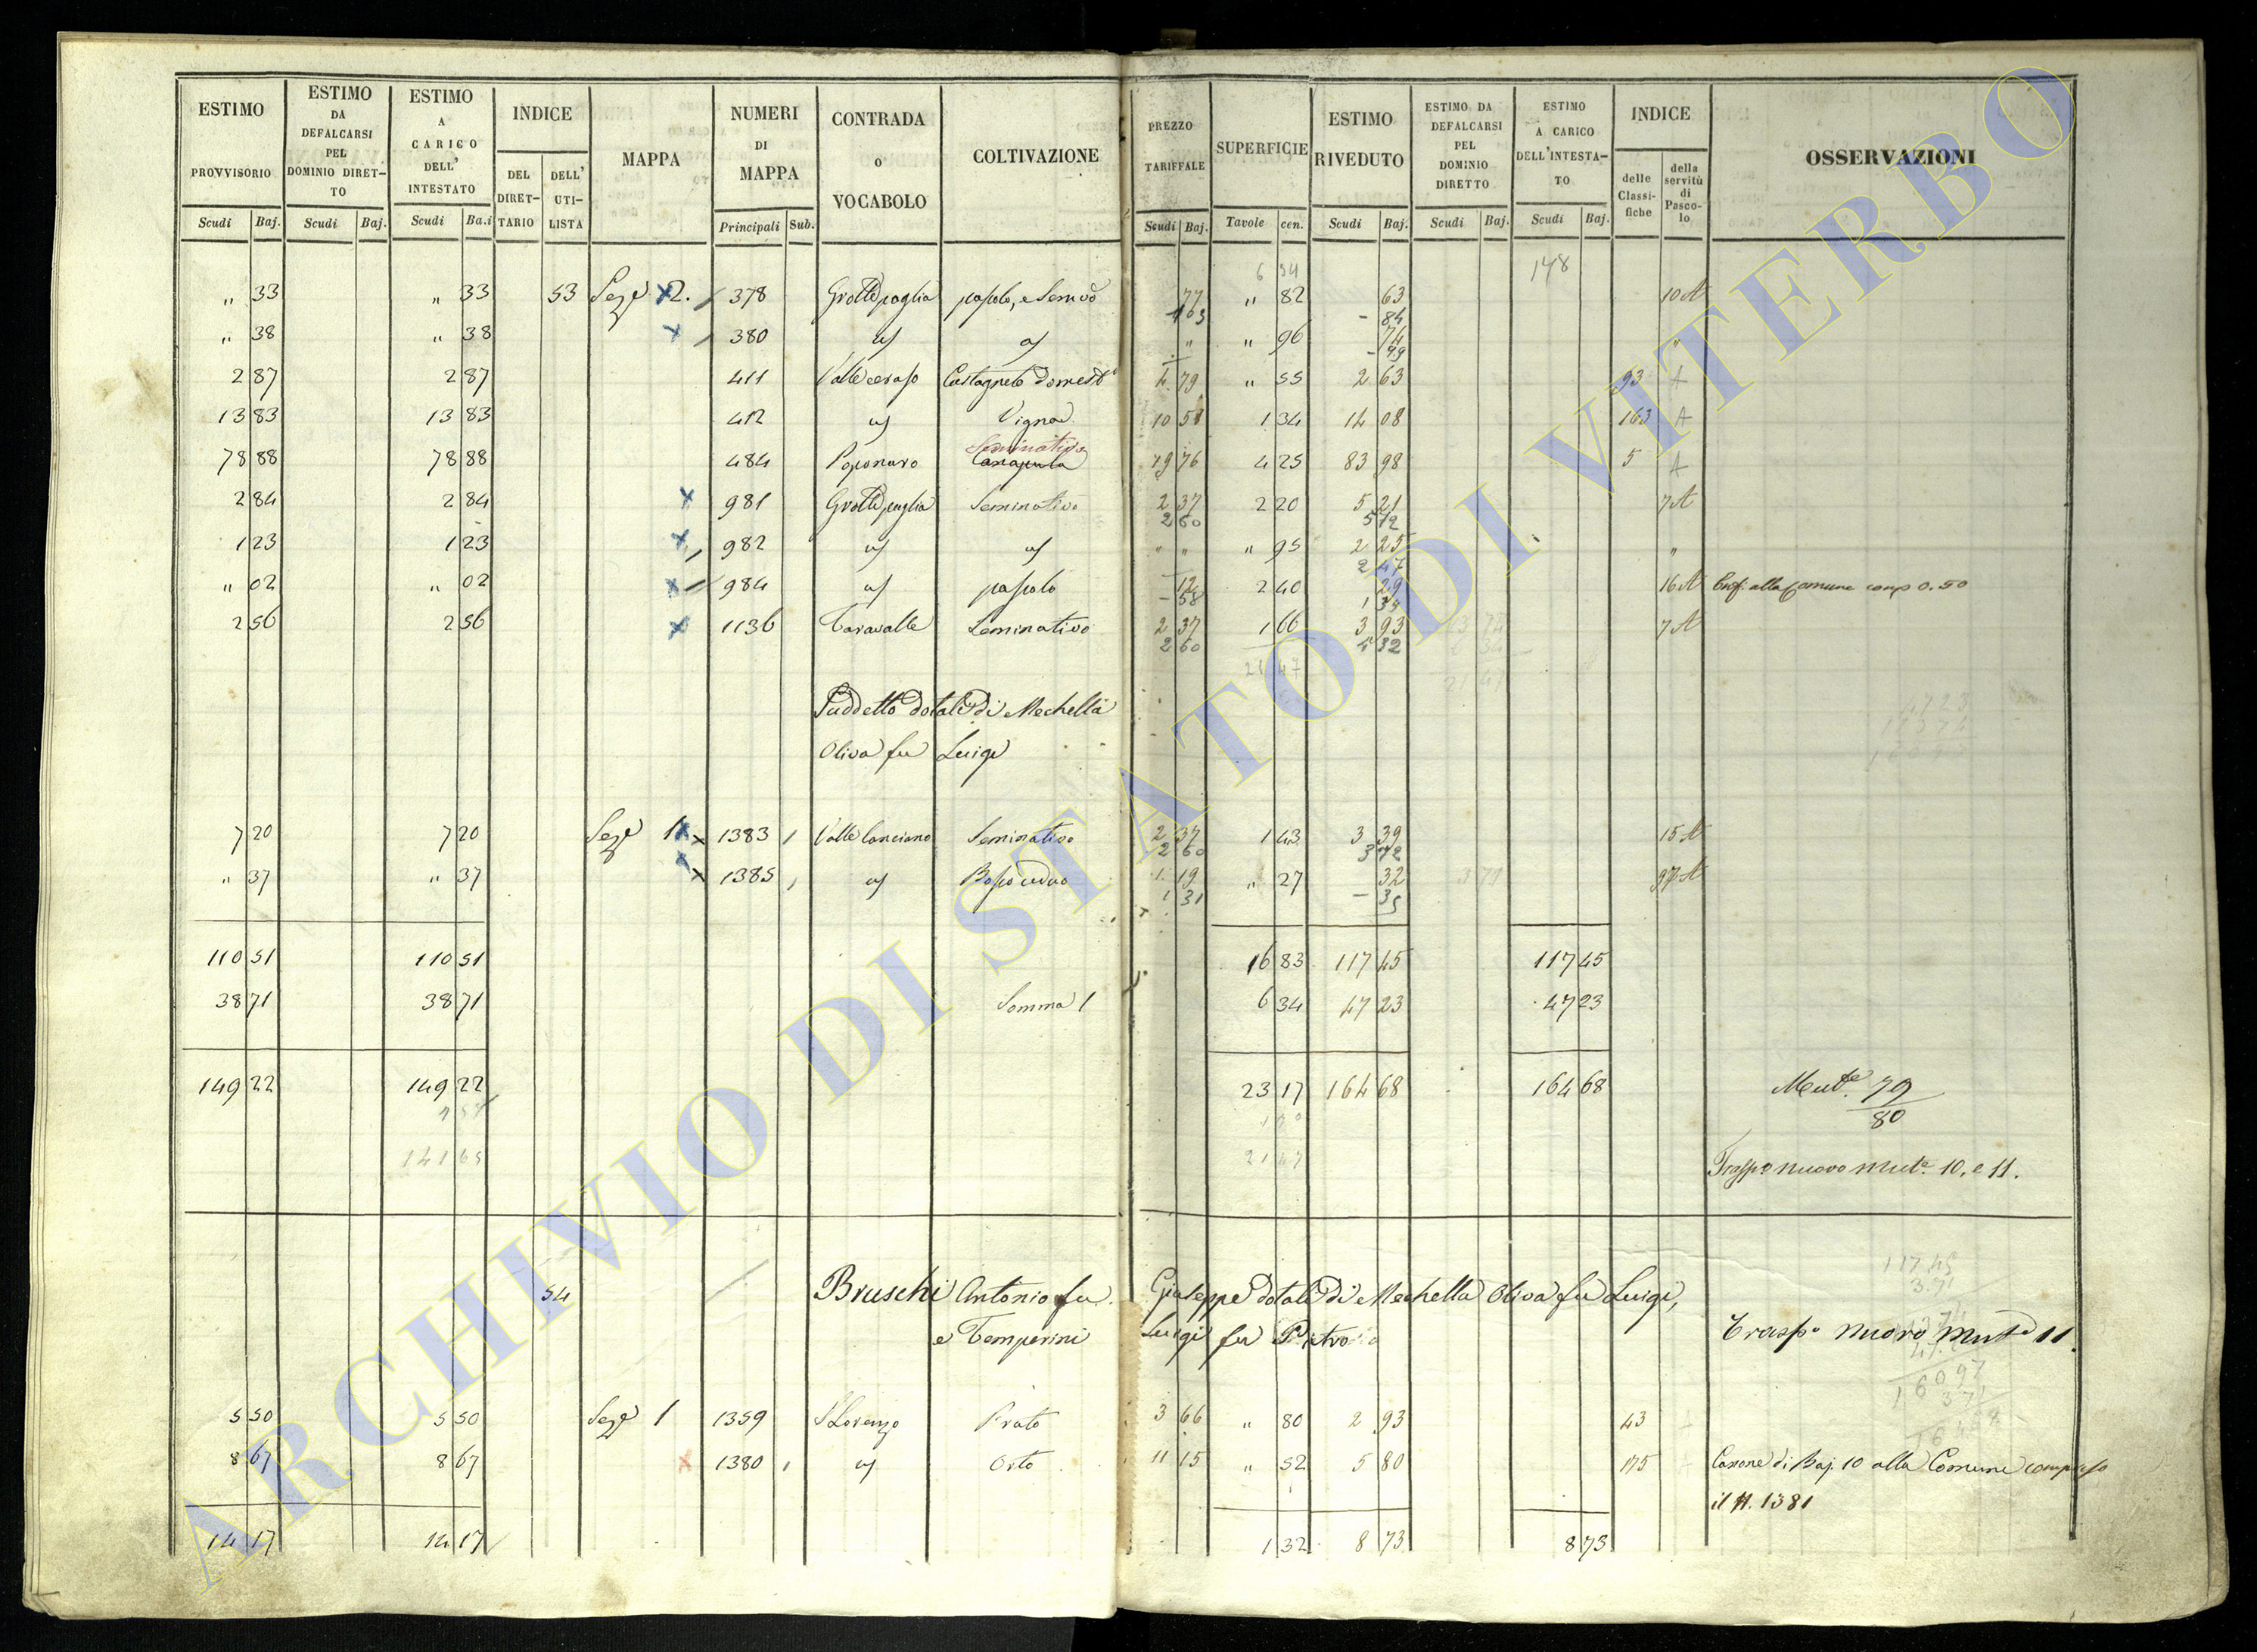 ESTIMO PROVVISORIO | ESTIMO DA DEFALCARSI PEL DOMINIO DIRET-TO | ESTIMO A CARICO DELL' INTESTATO | INDICE | MAPPA | NUMERI DI MAPPA | CONTRADA O VOCABOLO | COLTIVAZIONE | PREZZO TARIFFALE | SUPERFICIE | ESTIMO RIVEDUTO | ESTIMO DA DEFALCARSI PEL DOMINIO DIRETTO | ESTIMO A CARICO DELL'INTESTA-TO | INDICE | OSSERVAZIONI
DEL DIRET-TARIO | DELL' UTI-LISTA | delle Classi-fiche | della servitù di Pasco-lo
Scudi | Baj. | Scudi | Baj. | Scudi | Ba.i | Principali | Sub. | Scudi | Baj. | Tavole | cen. | Scudi | Baj. | Scudi | Baj. | Scudi | Baj.
6 34 | 148
" 33 | " 33 | 53 | Seze 2. | 378 | Grottepaglia | pascolo, e Semvo | 77 | " 82 | 63 | 10 A
103 | - 84
" 38 | " 38 | 380 | " 96 | 74 | "
- 99
2 87 | 2 87 | 411 | Valle ceraso | Castagneto domest | 4. 79 | " 55 | 2 63 | 93 | A
13 83 | 13 83 | 412 | Vigna | 10 51 | 1 34 | 14 08 | 163 | A
Seminativo
78 88 | 78 88 | 484 | Poponaro | Canapula | 19 76 | 4 25 | 83 98 | 5 | A
2 84 | 2 84 | 981 | Grottepaglia | Seminativo | 2 37 | 2 20 | 5 21 | 7 A
2 60 | 5 72
1 23 | 1 23 | 982 | " " | " 95 | 2 25 | "
2 47
" 02 | " 02 | 984 | pascolo | 12 | 2 40 | 29 | 16 A | alla Comune comp 0.50
- 58 | 1 39
2 56 | 2 56 | 1136 | Caravalle | Seminativo | 2 37 | 1 66 | 3 93 | 7 A
2 60 | 4 32
21 47
Suddetto dotale di Mechella
Oliva fu Luigi
7 20 | 7 20 | Seze 1 | 1383 | Valle lanciano | Seminativo | 2 37 | 1 43 | 3 39 | 15 A
2 60 | 3 72
" 37 | " 37 | 1385 | Bosco ceduo | 1. 19 | " 27 | 32 | 97 A
1 31 | - 35
110 51 | 110 51 | 16 83 | 117 45 | 117 45
38 71 | 38 71 | Somma 1 | 6 34 | 47 23 | 47 23
149 22 | 149 22 | 23 17 | 164 68 | 164 68 | Mut.e 79
80
141 65 | 21 47 | Traspo nuovo Mute 10, e 11.
117 45
3.71
54 | Bruschi Antonio fu Giuseppe dotale di Mechella Oliva fu Luigi,
e Temperini Luigi fu Pietro | Traspo nuovo Muta 11.
5 50 | 5 50 | Seze 1 | 1359 | S Lorenzo | Prato | 3 66 | " 80 | 2 93 | 43
8 67 | 8 67 | 1380 | Orto | 11 15 | " 52 | 5 80 | 175 | Canone di Baj. 10 alla Comune compreso
il N. 1381
14 17 | 14 17 | 1 32 | 8 73 | 8 73
ARCHIVIO DI STATO DI VITERBO